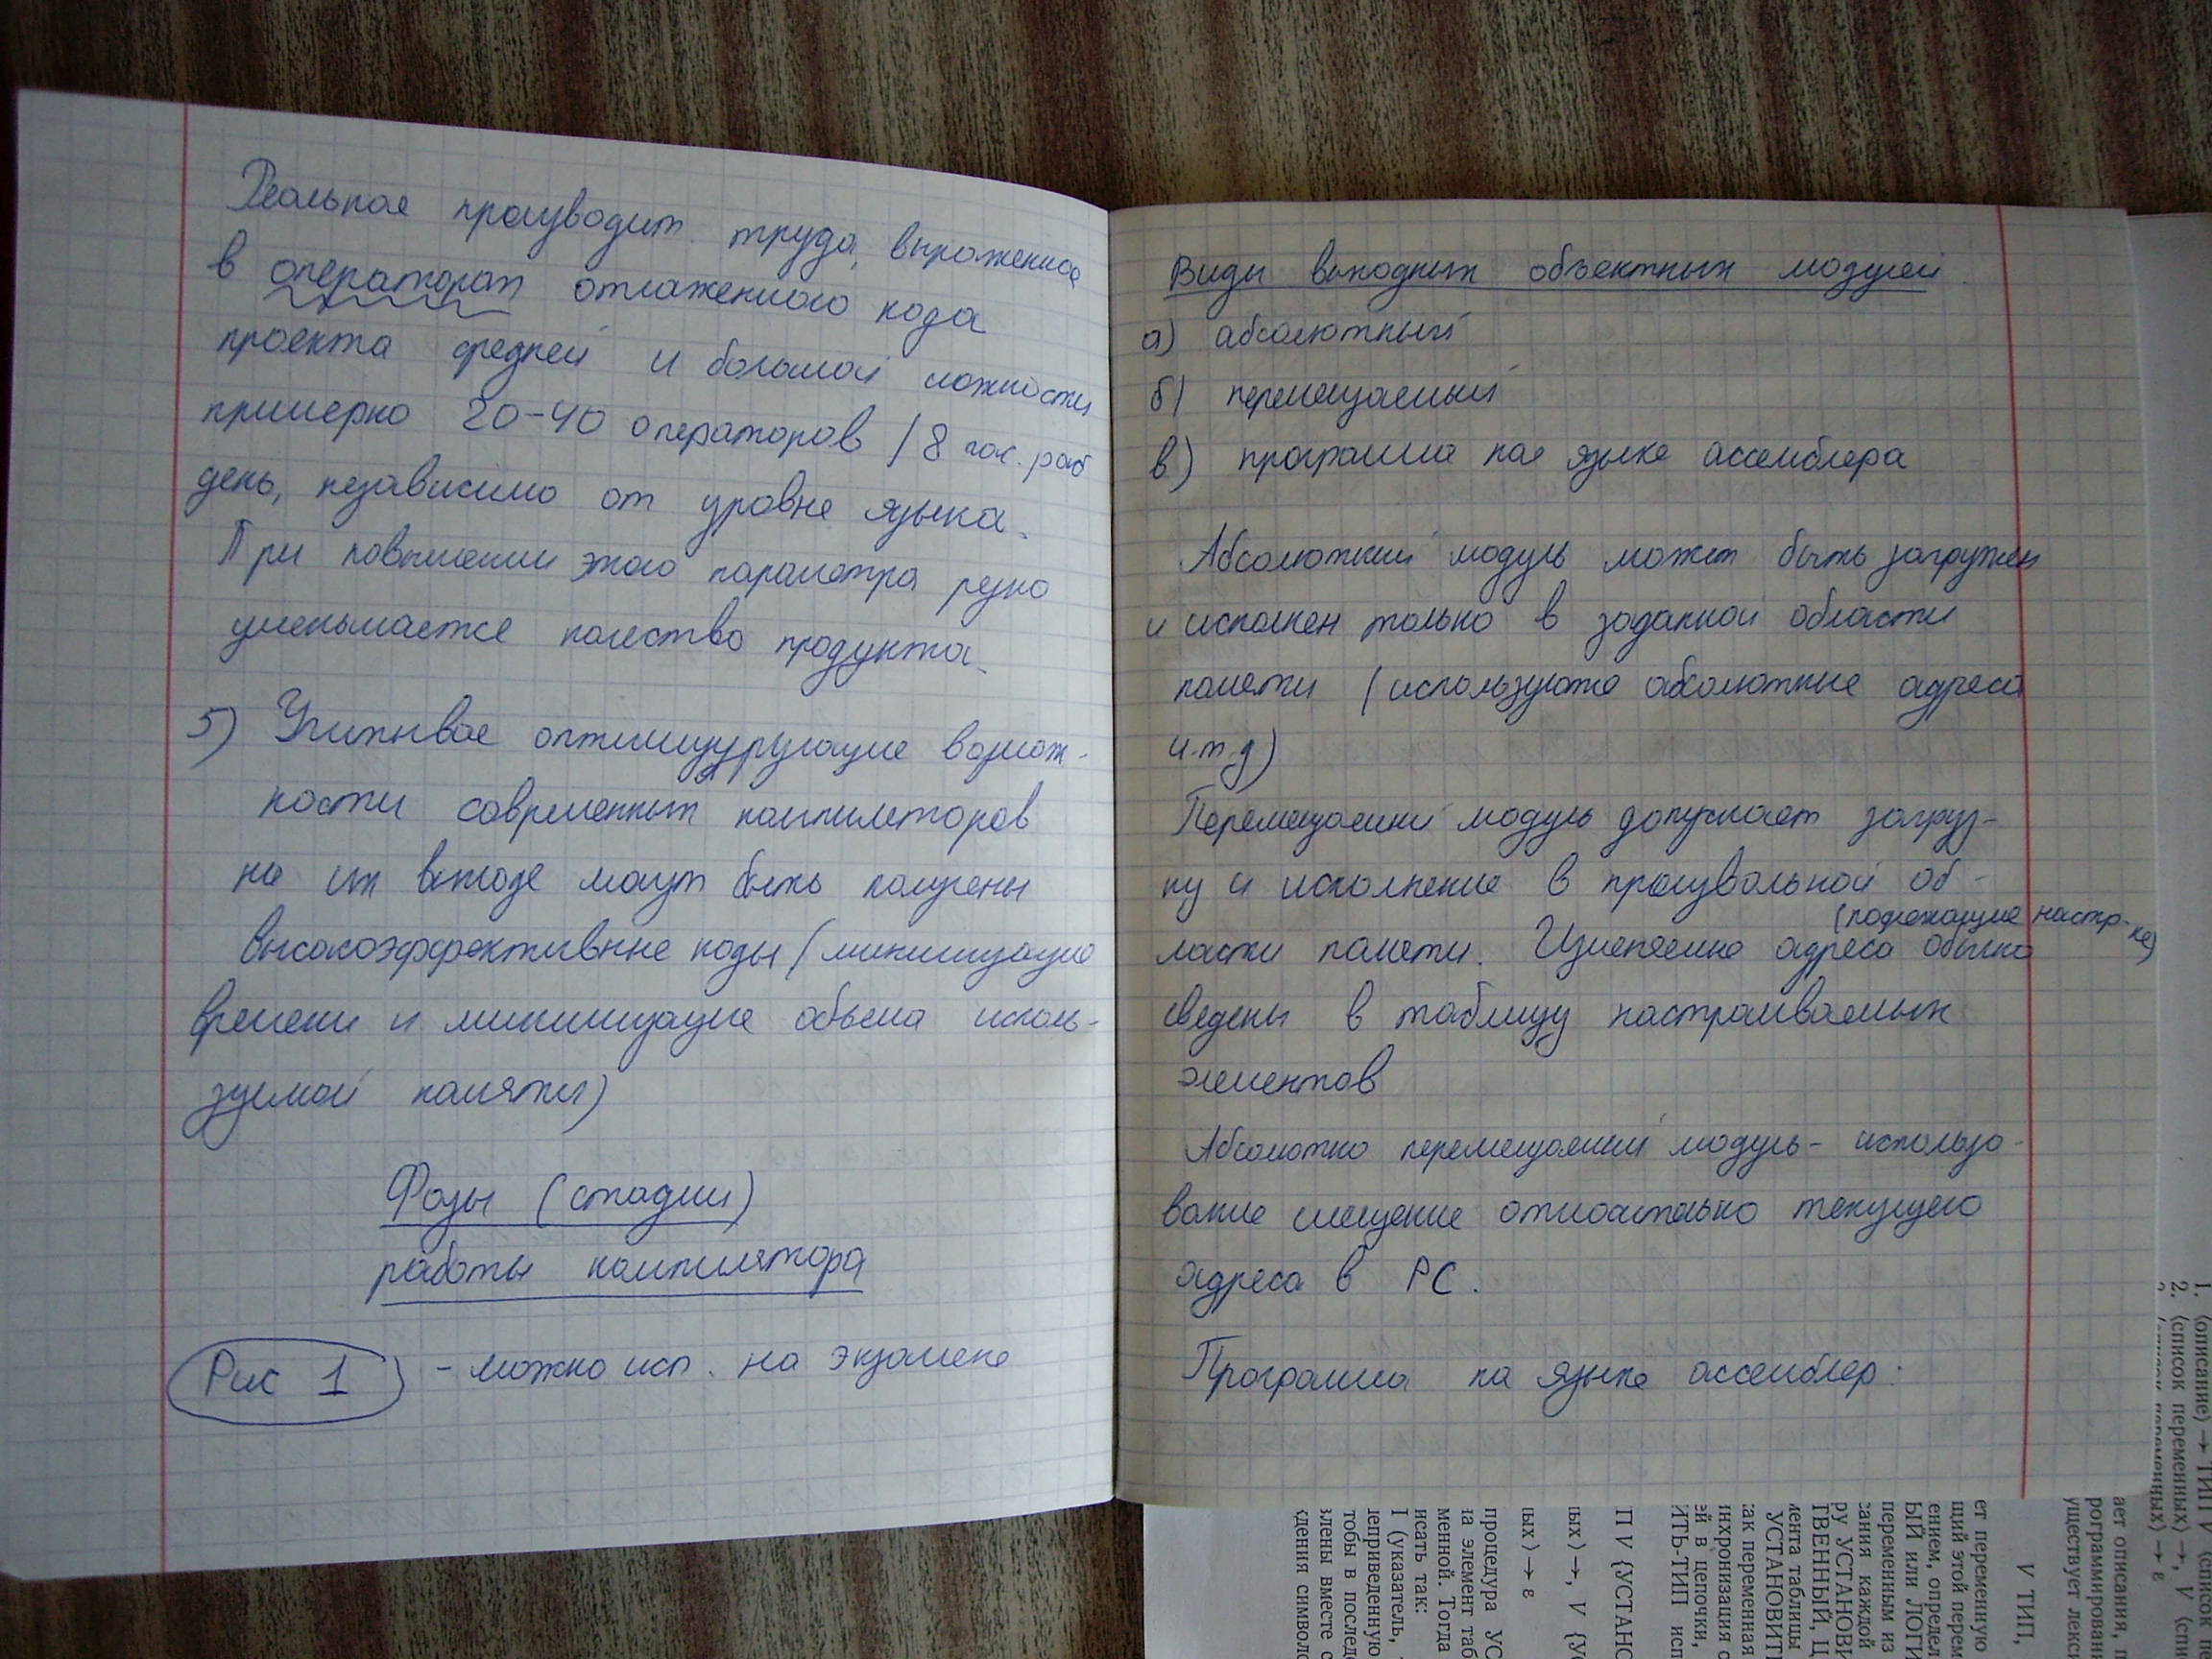 Реальная производит. труда, выраженная
в операторах отлаженного кода
проекта средней и большой сложности
примерно 20-40 операторов / 8 час. раб
день, независимо от уровня языка.
При повышении этого параметра резко
уменьшается качество продукта.
5) Учитывая оптимизирующие возмож-
ности современных компиляторов
на их выходе могут быть получены
высокоэффективные коды (минимизация
времени и минимизация объема исполь-
зуемой памяти)
Фазы (стадии)
работы компилятора
Рис 1 - можно исп. на экзамене
Виды выходных объектных модулей.
а) абсолютный
б) перемещаемый
в) программа на языке ассемблера
Абсолютный модуль может быть загружен
и исполнен только в заданной области
памяти (используются абсолютные адреса
и.т.д)
Перемещаемый модуль допускает загруз-
ку и исполнение в произвольной об-
(подлежащие настр-ке)
ласти памяти. Изменяемые адреса обычно
сведены в таблицу настраиваемых
элементов
Абсолютно перемещаемый модуль - использо-
вание смещение относительно текущего
адреса в PC.
Программа на языке ассемблер:
1. ⟨описание⟩ → ТИП V ⟨список пе
2. ⟨список переменных⟩ →, V ⟨спи
переменных⟩ → ε
ает описания, п
рограммировани
уществует лекси
V ТИП,
ет переменную
щий этой перем
ением, определ
ЫЙ или ЛОГИ
переменным из
сания каждой
ру УСТАНОВИ
ТВЕННЫЙ, Ц
мента таблицы
УСТАНОВИТЬ
как переменная
инхронизация с
ей в цепочки,
ИТЬ-ТИП исп
П V {УСТАНО
ных⟩ →, V {УС
ных⟩ → ε
процедура УС
на элемент таб
менной. Тогда
исать так:
I (указатель,
неприведенную
тобы в послед
влены вместе с
дения символо